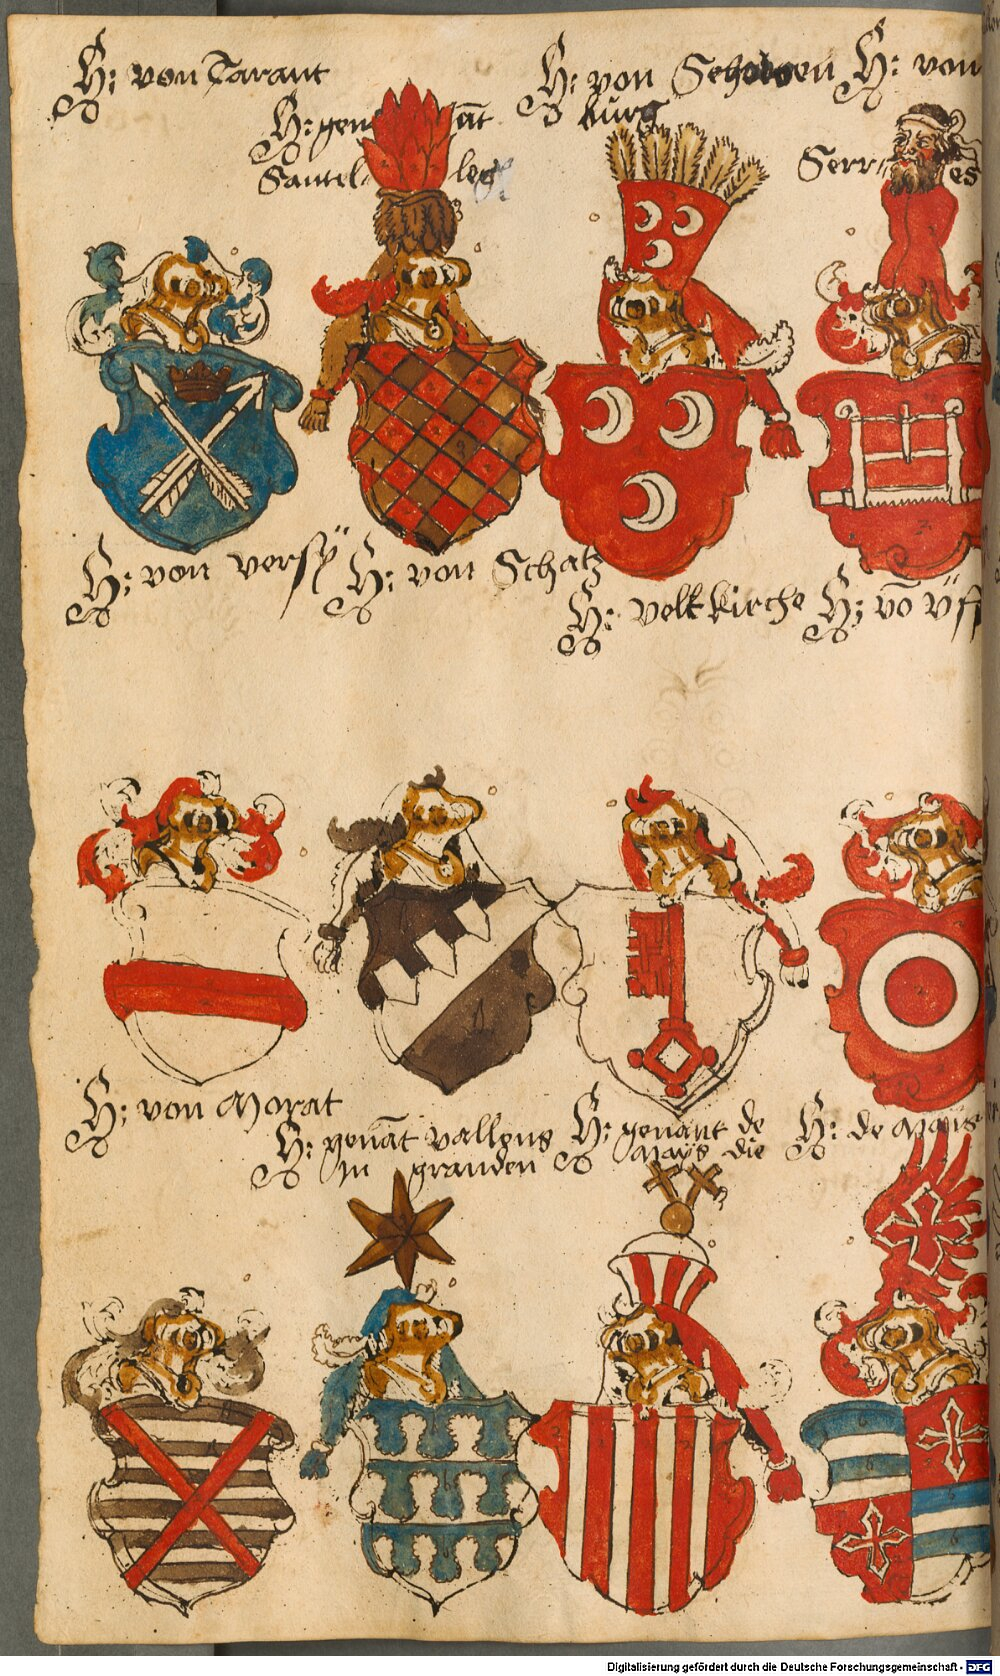 H: von Tarant
H: gen ant
Santel leg
H: von Schowen
burg
H: von
Serr es
H: von versÿ
H: von Schatz
H: veltkirche
H: vō Üff
H: von Morat
H: genāt vallens
in granden
H: genant de
Maÿs die
H: de Maÿs
Digitalisierung gefördert durch die Deutsche Forschungsgemeinschaft - DFG